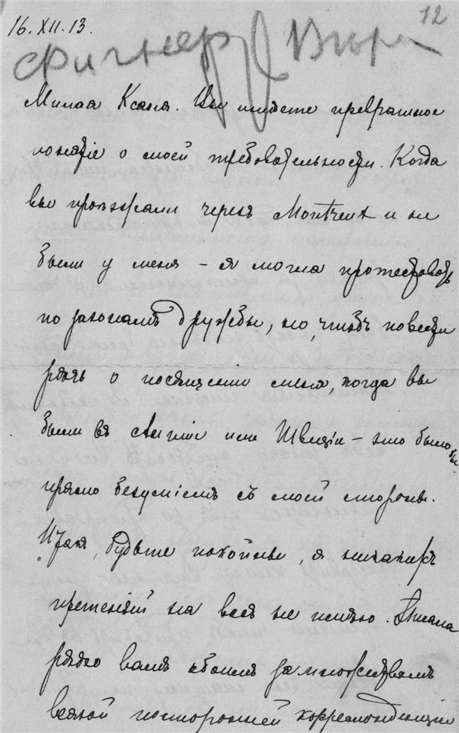 16.XII.13.
12
Фигнер Вера
Милая Ксана. Вы имѣете превратное
понятіе о моей требовательности. Когда
вы проѣзжали черезъ Montreux и не
были у меня – я могла протестовать
по законамъ дружбы, но, чтобъ повести
рѣчь о посѣщеніи меня, когда вы
были въ Англіи или Швеціи – это было бы
прямо безуміемъ съ моей стороны.
Итакъ, будьте покойны, я никакихъ
претензій на васъ не имѣю. Писала
рѣдко вамъ обоимъ за множествомъ
всякой посторонней корреспонденціи